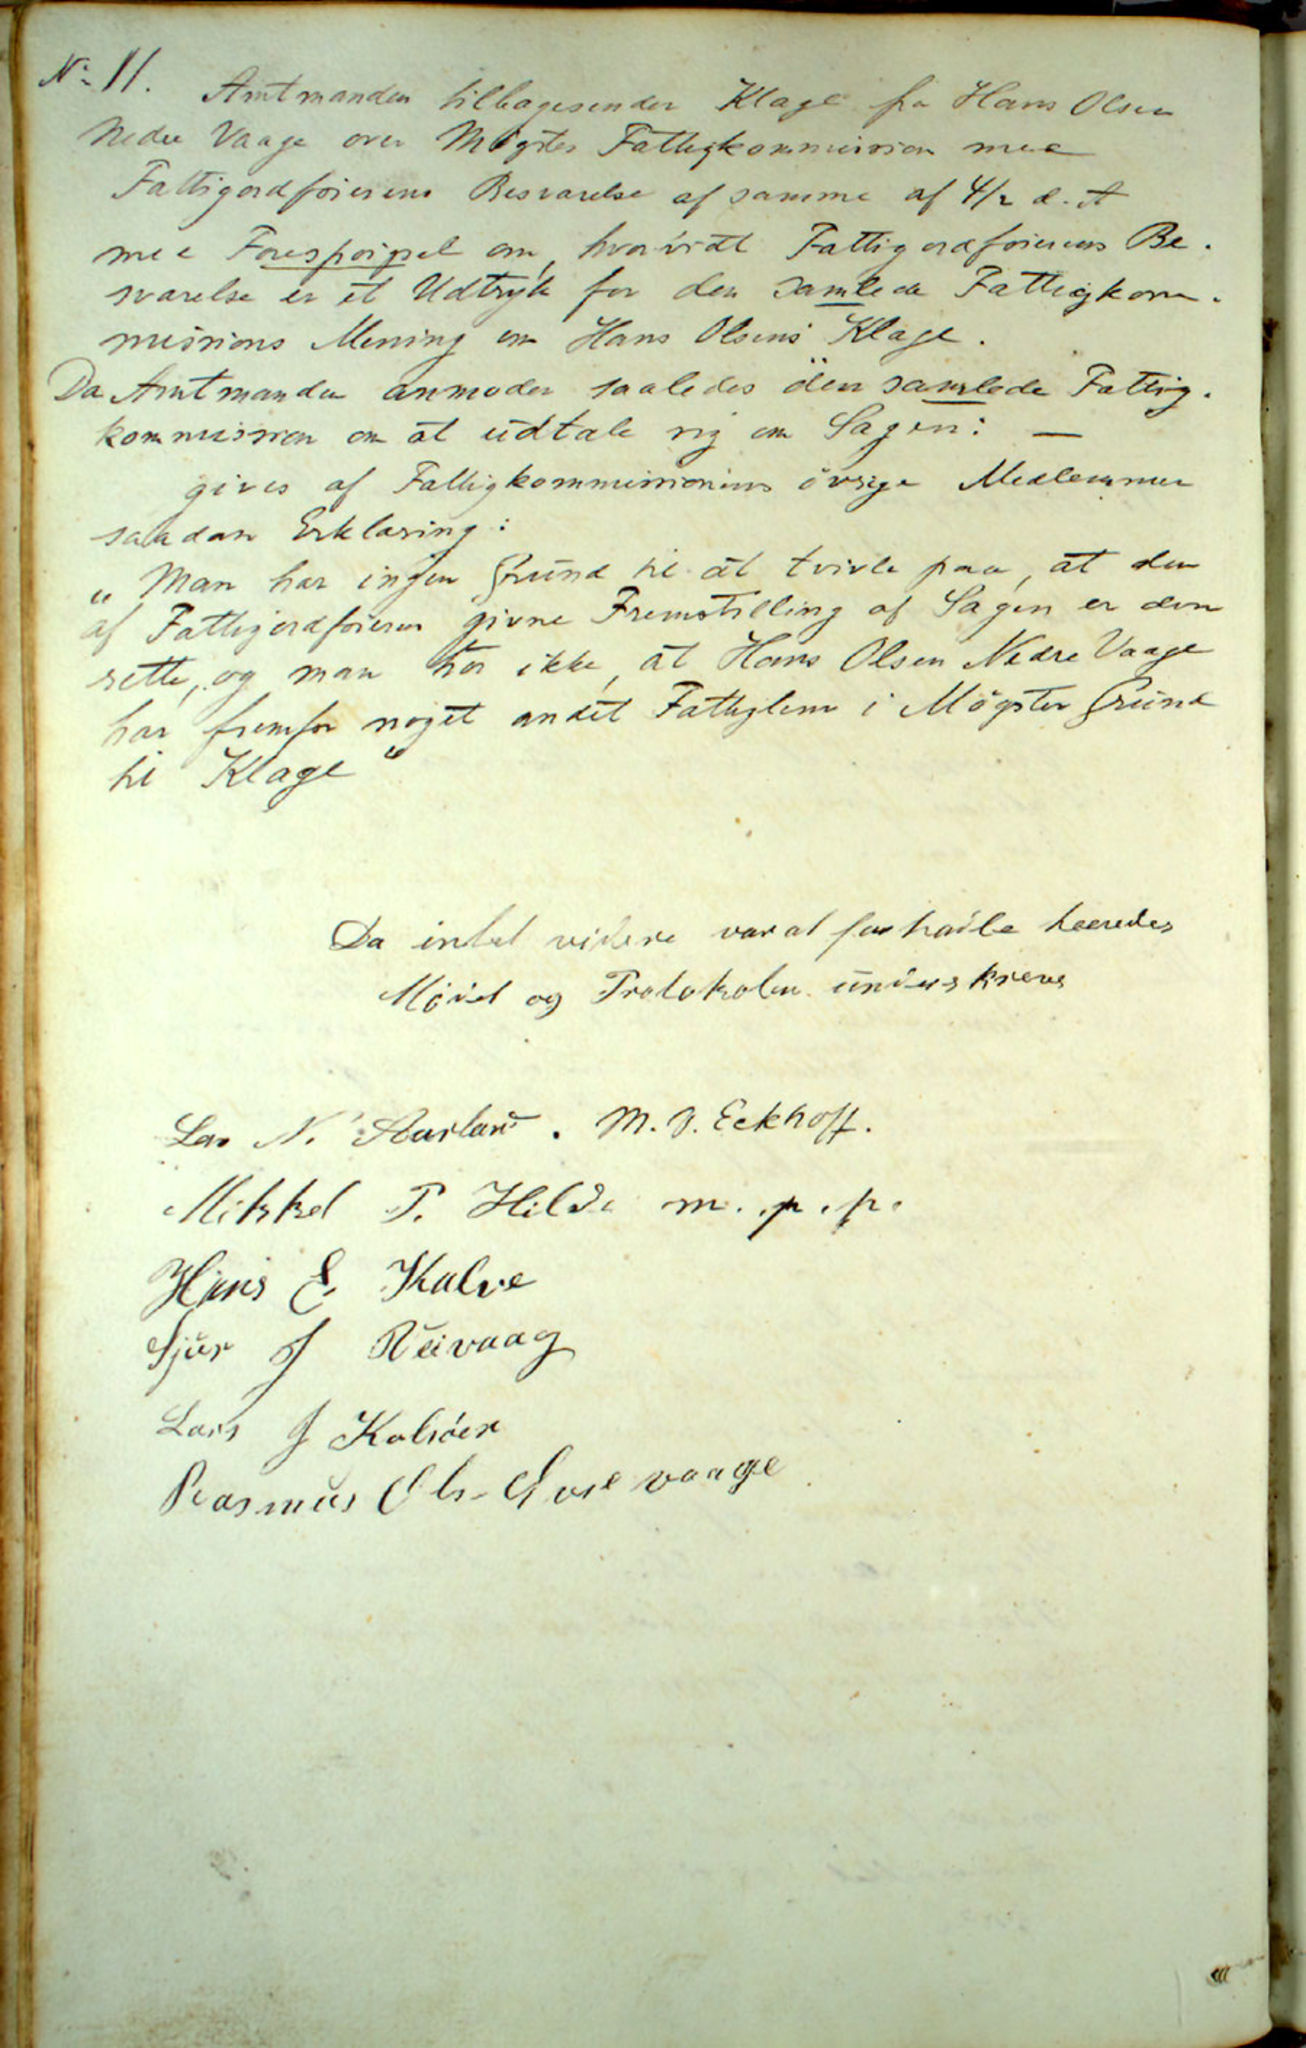 No 11. Amtmanden tilbagesender Klage fra Hans Olsen
Nedre Vaage over Møgster Fattigkommission med
Fattigordførerens Besvarelse af samme af 4/2 d. A
med Forespørgsel om, hvorvidt Fattigordførerens Be-
svarelse er et Udtryk for den samlede Fattigkom-
missions Mening om Hans Olsens Klage.
Da Amtmanden anmoder saaledes den samlede Fattig-
kommission om at udtale sig om Sagen: —
gives af Fattigkommissionens övrige Medlemmer
saadan Erklæring:
„Man har ingen Grund til at tvivle paa, at den
af Fattigordføreren givne Fremstilling af Sagen er den
rette, og man tror ikke, at Hans Olsen Nedre Vaage
har fremfor noget andet Fattiglem i Mögster Grund
til Klage“
Da intet videre var at forhandle hævedes
Mödet og Protokolen underskreves
Lars N. Aarland. M. J. Eckhoff.
Mikkel P. Hilde m. p. p.
Hans E. Kalve
Sjur J Reivaag
Lars J Kalsöen
Rasmus Ols- vaage